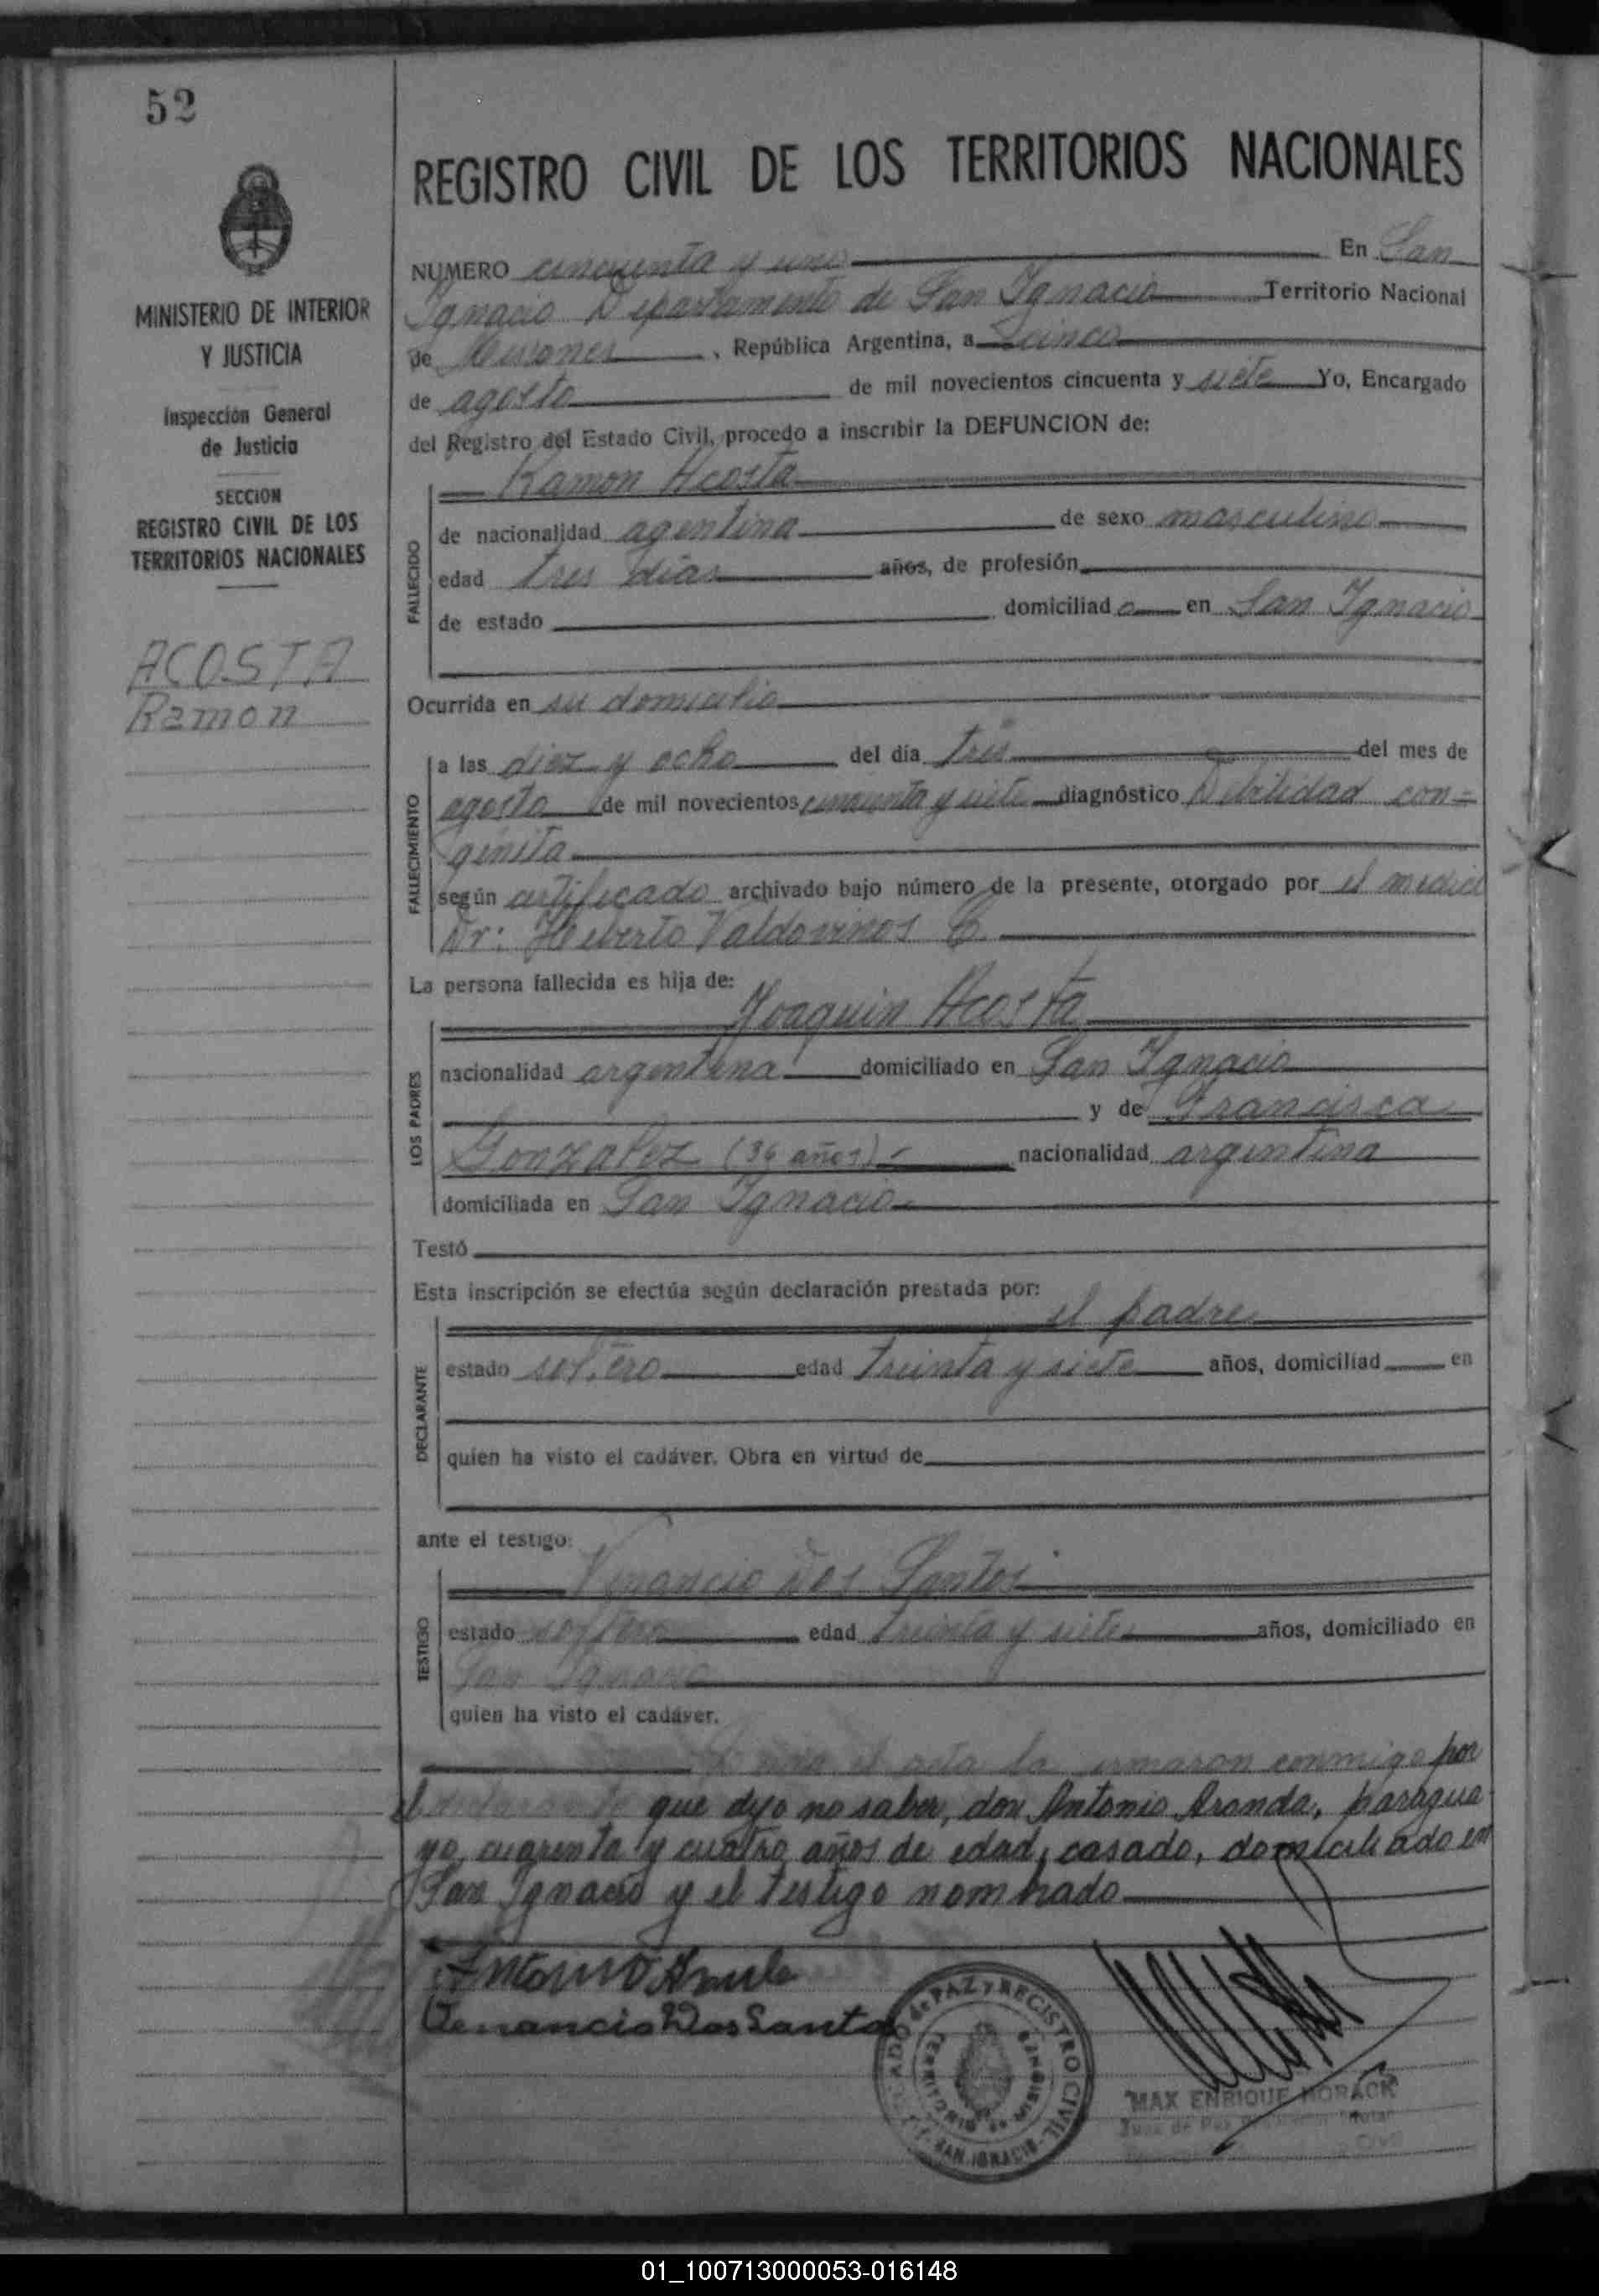 52
MINISTERIO DE INTERIOR
Y JUSTICIA
Inspección General
de Justicia
SECCION
REGISTRO CIVIL DE LOS
TERRITORIOS NACIONALES
ACOSTA
Ramon
REGISTRO CIVIL DE LOS TERRITORIOS NACIONALES
NUMERO cincuenta y uno En San
Ignacio Departamento de San Ignacio Territorio Nacional
de Misiones, República Argentina, a cinco
de agosto de mil novecientos cincuenta y siete Yo, Encargado
del Registro del Estado Civil, procedo a inscribir la DEFUNCION de:
Ramon Acosta
FALLECIDO
de nacionalidad agentina de sexo masculino
edad tres dias años, de profesión
de estado domiciliado en San Ignacio
Ocurrida en su domicilio
FALLECIMIENTO
a las diez y ocho del día tres del mes de
agosto de mil novecientos cincuenta y siete diagnóstico Debilidad con=
génita
según certificado archivado bajo número de la presente, otorgado por el medico
Dr: Heberto Valdovinos C.
La persona fallecida es hija de:
Joaquin Acosta
LOS PADRES
nacionalidad argentina domiciliado en San Ignacio
y de Francisca
Gonzalez (36 años) nacionalidad argentina
domiciliada en San Ignacio
Testó
Esta inscripción se efectúa según declaración prestada por:
el padre
DECLARANTE
estado soltero edad treinta y siete años, domiciliad en
quien ha visto el cadáver. Obra en virtud de
ante el testigo:
Venancio Dos Santos
TESTIGO
estado soltero edad treinta y siete años, domiciliado en
San Ignacio
quien ha visto el cadáver.
el acta la firmaron conmigo por
el declarante que dijo no saber, don Antonio Aranda, paragua
yo, cuarenta y cuatro años de edad, casado, domiciliado en
San Ignacio y el testigo nombrado
Antonio
Venancio Dos Santos
JUZGADO de PAZ y REGISTRO CIVIL
TERRITORIO de MISIONES
SAN IGNACIO
MAX ENRIQUE NORACK
Juez de Paz
Civil
01_100713000053-016148